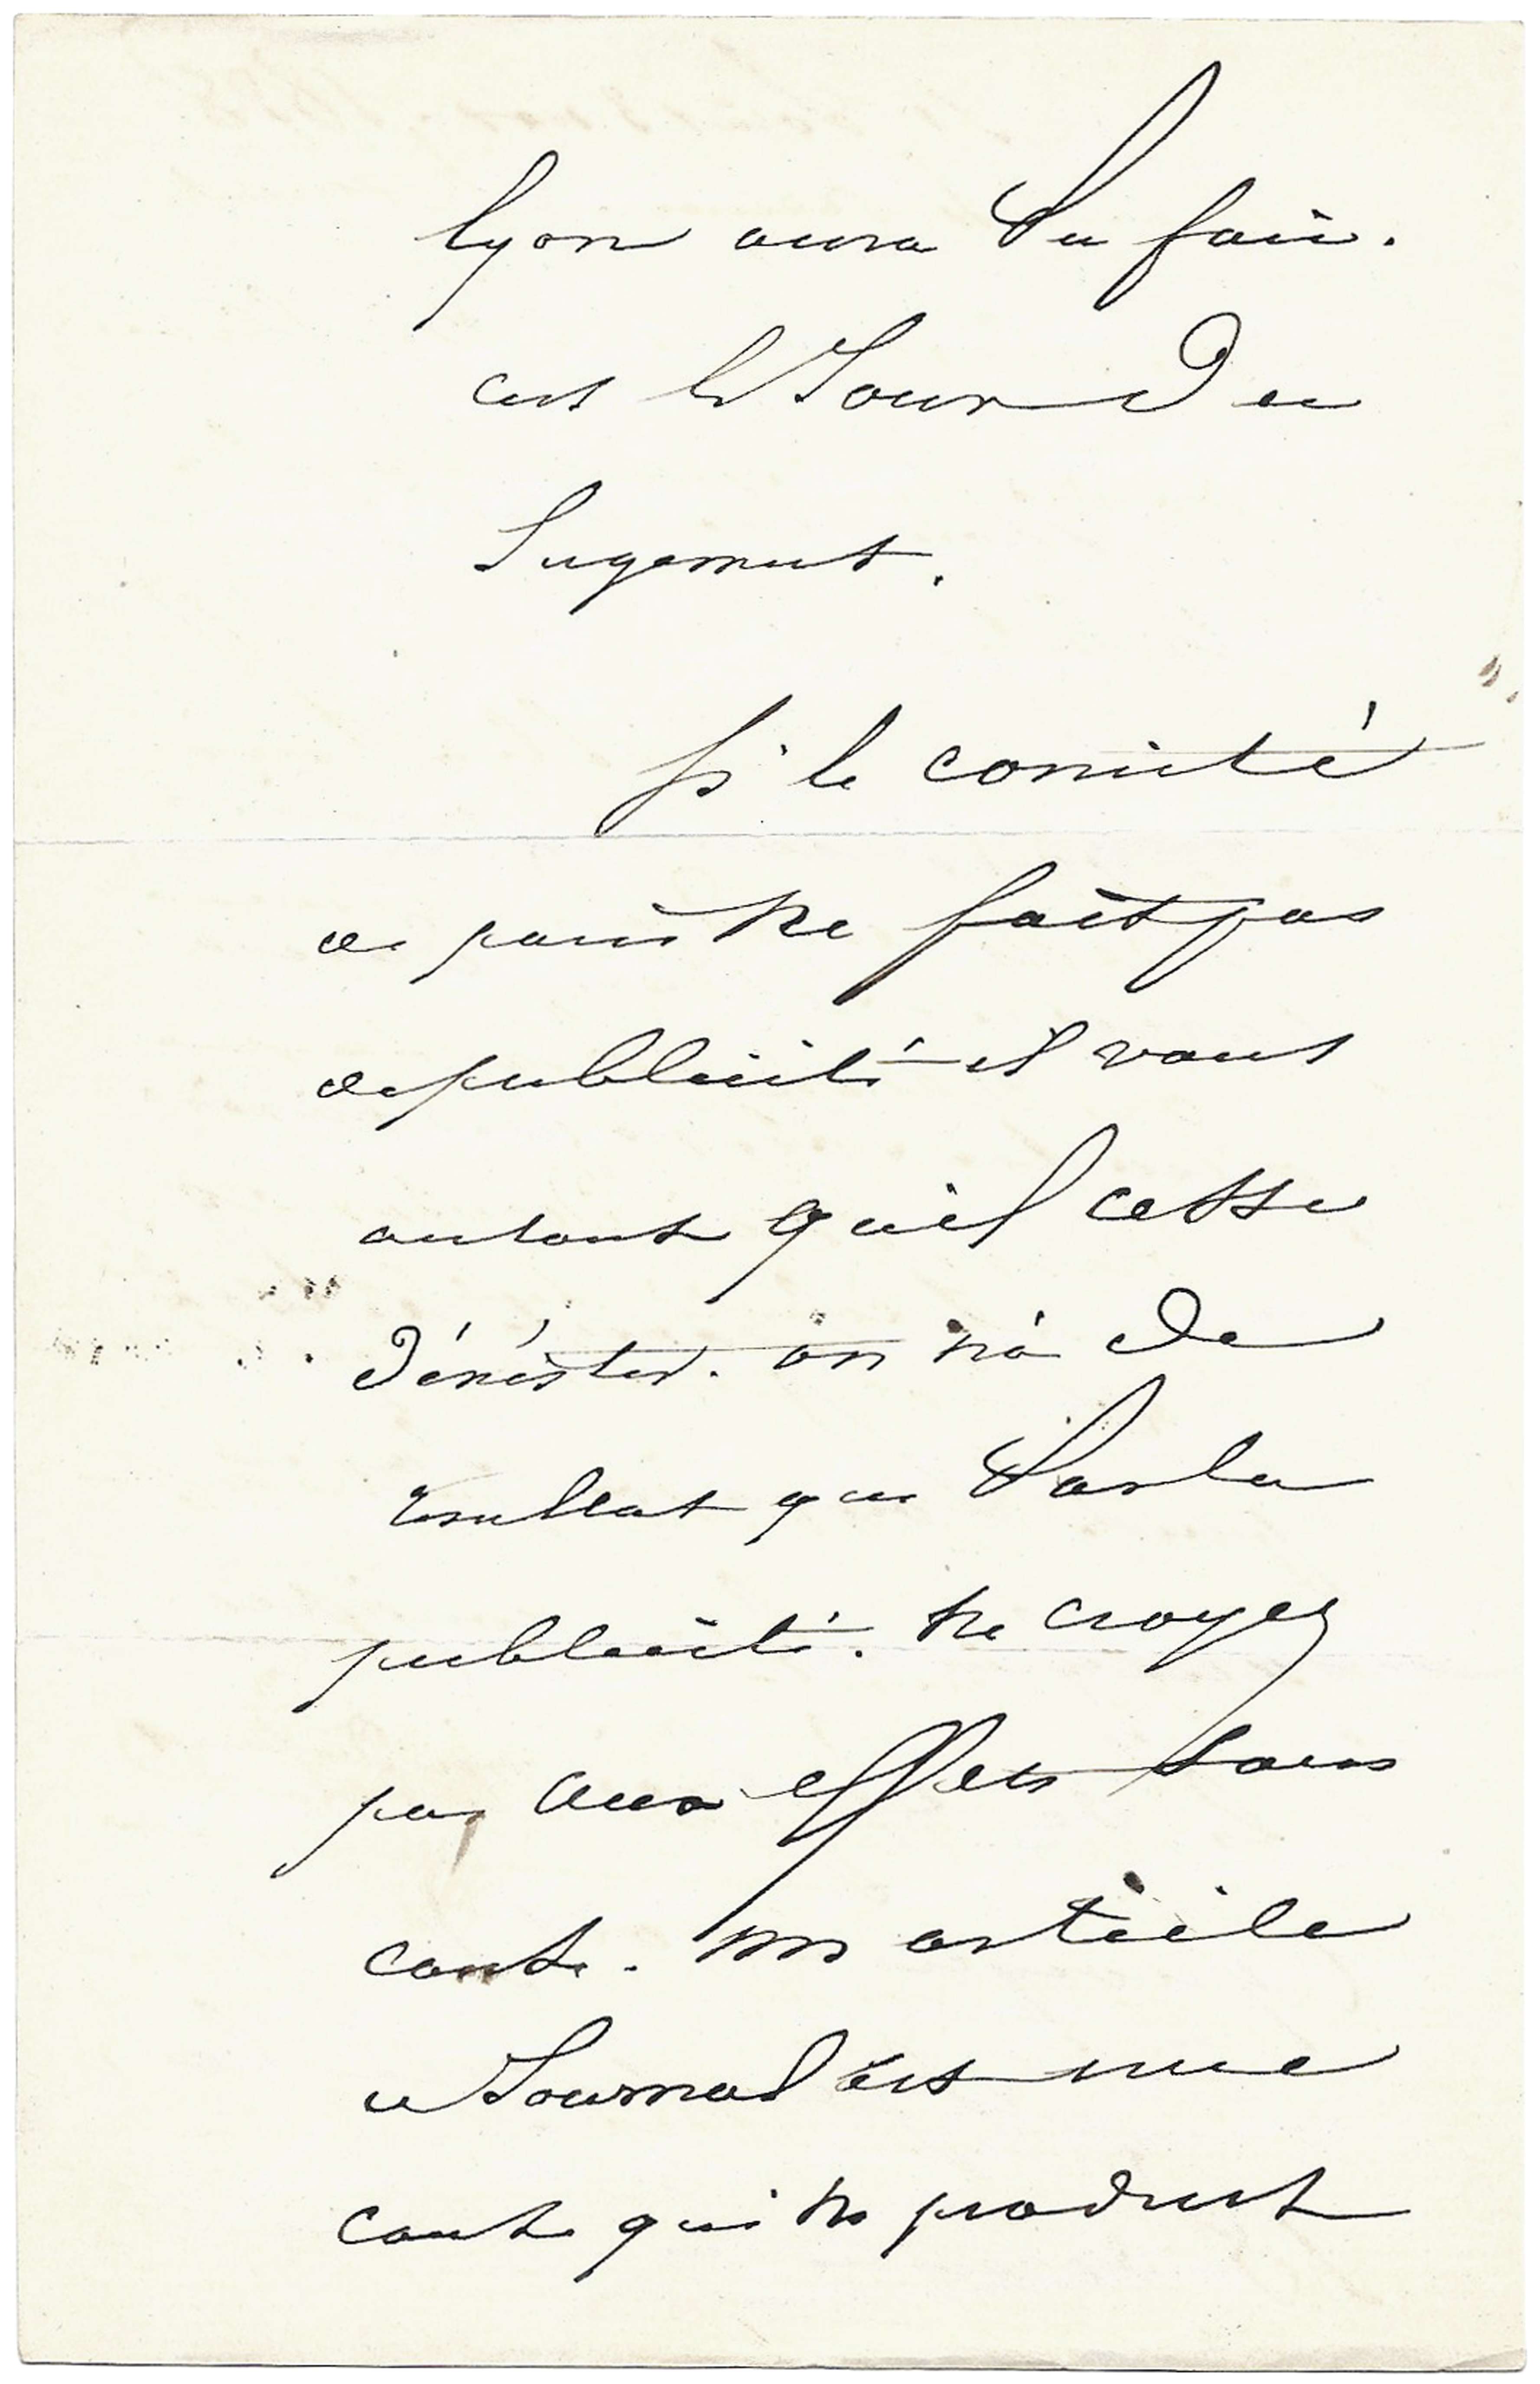 Lyon aura Su faire.
cest le Jour du
Jugement.
Si le comité
de paris ne fait pas
de publicité il vaut
autant qu'il cesse
d'éxister. on n'a de
resultat que Par la
publicité. ne croyez
pas aux effets Sans
cause. un article
de Journal est une
cause qui ne produit